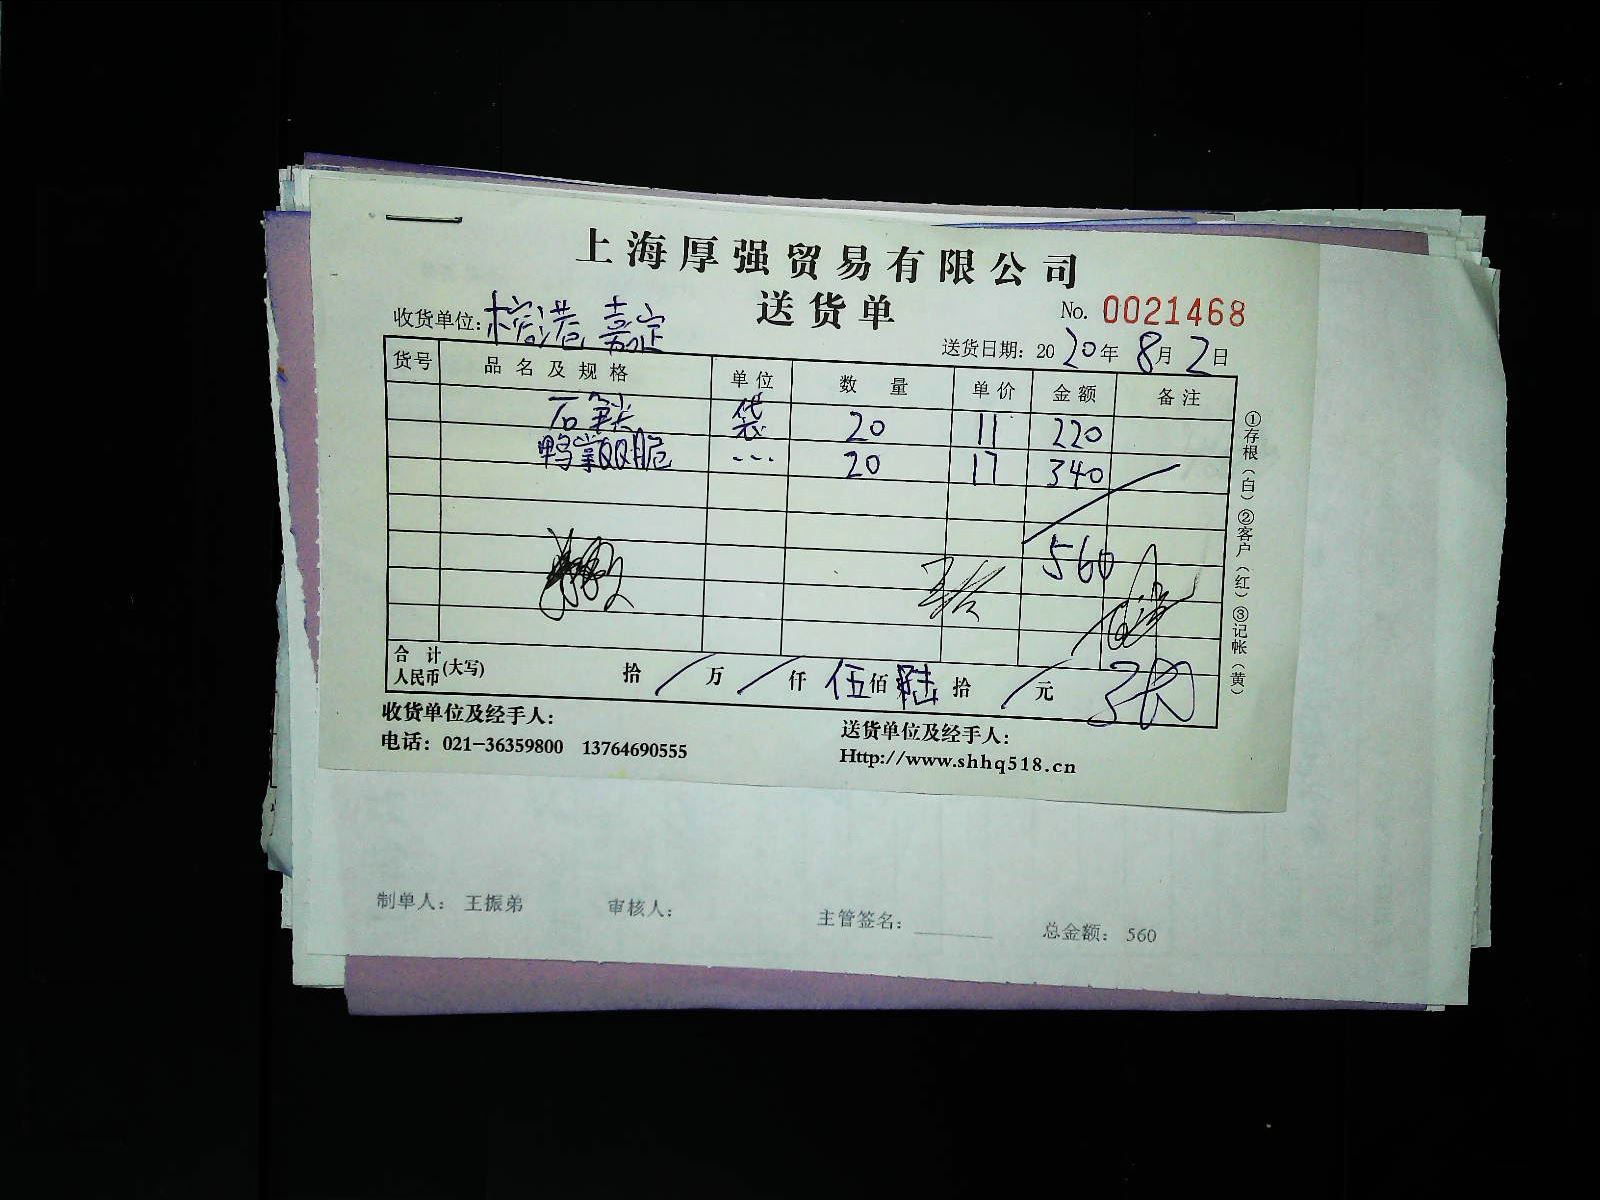 上海厚强贸易有限公司
送货单
No. 0021468
收货单位：榕港 嘉定
送货日期：2020年8月2日
货号 品名及规格 单位 数量 单价 金额 备注
袋 20 11 220
鸭掌QQ脆 … 20 17 340
560
合计人民币(大写) 拾 / 万 / 仟 伍 佰 陆 拾 / 元
收货单位及经手人：
送货单位及经手人：
电话：021-36359800 13764690555
Http://www.shhq518.cn
①存根（白）②客户（红）③记帐（黄）
制单人： 王振弟 审核人： 主管签名： 总金额： 560